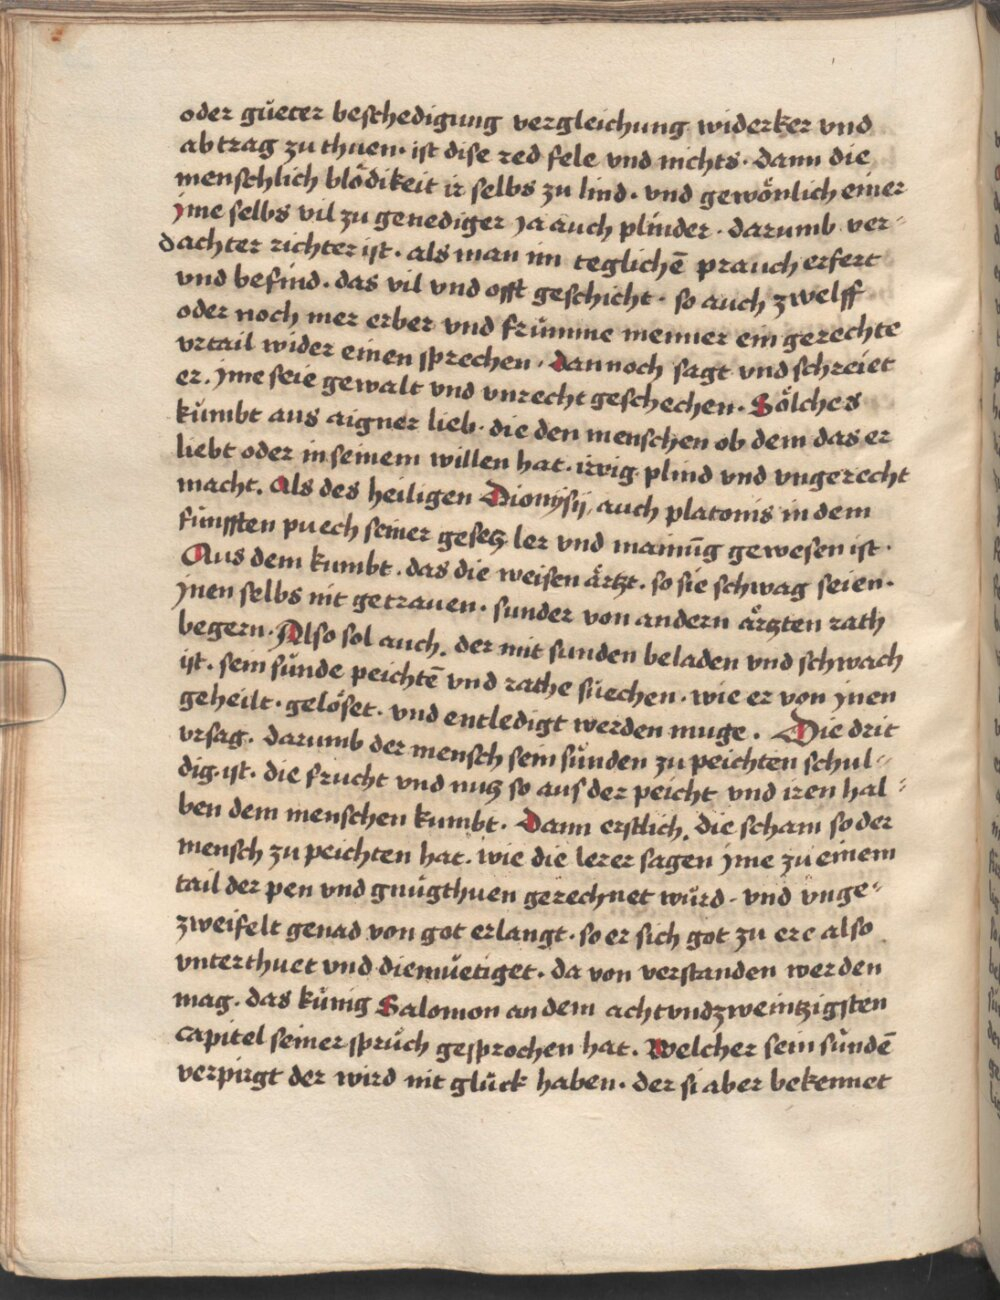 oder gůeter beschedigung vergleichung widerker vnd
abtrag zu thuen · ist dise red fele vnd nichts · dann die
menschlich blödikeit ir selbs zu lind · vnd gewönlich einer
yme selbs vil zu genediger ja auch plinder · darumb ver-
dachter richter ist · als man im teglichē prauch erfert
vnd befind · das vil vnd offt geschicht · so auch zwelff
oder noch mer erber vnd frümme menner ein gerechte
vrtail wider einen sprechen · dannoch sagt vnd schreiet
er. yme seie gewalt vnd vnrecht geschechen · Sölches
kůmbt aus aigner lieb · die den menschen ob dem das er
liebt oder in seinem willen hat · irrig plind vnd vngerecht
macht. Als des heiligen Dionysij, auch platonis in dem
fünfften puech seiner gesetz ler vnd mainūg gewesen ist ·
Aus dem kumbt · das die weisen ärtzt · so sie schwag seien ·
ynen selbs nit getrauen · sunder von andern ärtzten rath
begern · Also sol auch, der mit sunden beladen vnd schwach
ist · sein sünde peichtē vnd rathe suechen · wie er von ynen
geheilt · gelöset · vnd entledigt werden muge . Die drit
vrsag · darumb der mensch sein sünden zu peichten schul-
dig ist · die frucht vnd nutz so aus der peicht vnd iren hal-
ben dem menschen kumbt · Dann erstlich, die scham so der
mensch zu peichten hat · wie die lerer sagen yme zu einem
tail der pen vnd gnůgthuen gerechnet würd · vnd vnge-
zweifelt genad von got erlangt · so er sich got zu ere also
vnterthuet vnd diemůetiget · da von verstanden werden
mag · das künig Salomon an dem achtvndzweintzigsten
capitel seiner sprüch gesprochen hat · Welcher sein sündē
verpirgt der wird nit glück haben · der si aber bekennet